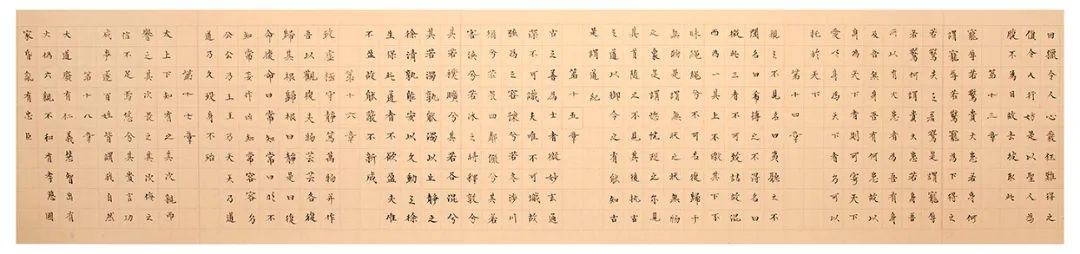 田獵令人心發狂難得之
貨令人行妨是以聖人為
腹不為目故去彼取此
第十三章
寵辱若驚貴大患若身何
謂寵辱若驚寵為下得之
若驚失之若驚是謂寵辱
若驚何謂貴大患若身吾
所以有大患者為吾有身
及吾無身吾有何患故以
身為天下者則可寄天下
愛以身為天下者乃可以
託於天下
第十四章
視之不見名曰夷聽之不
聞名曰希搏之不得名曰
微此三者不可致詰故混
而為一其上不皦其下不
昧繩繩兮不可名復歸于
無物是謂無狀之狀無物
之象是謂惚恍迎之不見
其首隨之不見其後執古
之道以御今之有能知古
是謂道紀
第十五章
古之善為士者微妙玄通
深不可識夫唯不可識故
強為之容豫兮若冬涉川
猶兮若畏四鄰儼兮其若
容渙兮若冰之將釋敦兮
其若樸曠兮其若谷混兮
其若濁孰能濁以止靜之
徐清孰能安以久動之徐
生保此道者不欲盈夫唯
不盈故能蔽不新成
第十六章
致虛極守靜篤萬物並作
吾以觀復夫物芸芸各復
歸其根歸根曰靜是曰復
命復命曰常知常曰明不
知常妄作凶知常容容乃
公公乃王王乃天天乃道
道乃久歿身不殆
第十七章
太上下知有之其次親而
譽之其次畏之其次侮之
信不足焉悠兮其貴言功
成事遂百姓皆謂我自然
第十八章
大道廢有仁義慧智出有
大偽六親不和有孝慈國
家昏亂有忠臣